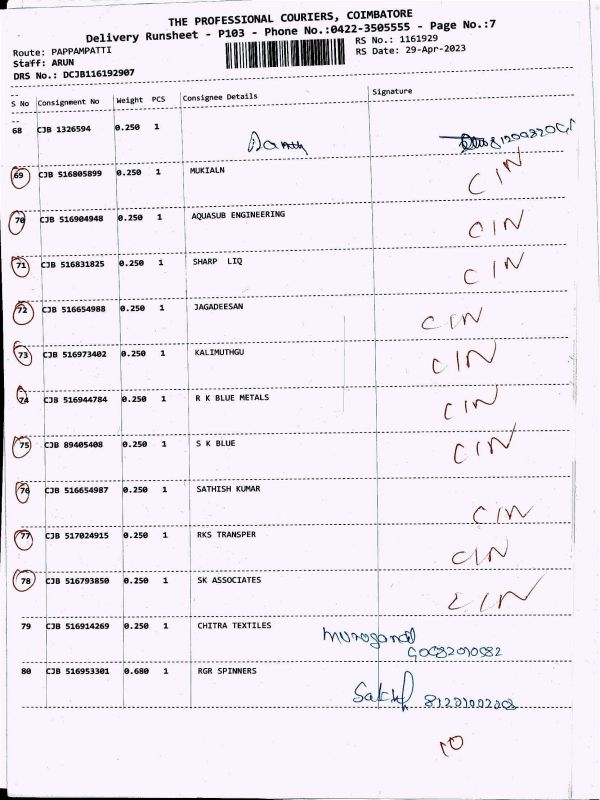 THE PROFESSIONAL COURIERS, COIMBATORE
Delivery Runsheet - P103 - Phone No.:0422-3505555 - Page No.:7
Route: PAPPAMPATTI
RS No.: 1161929
Staff: ARUN
RS Date: 29-Apr-2023
DRS No.: DCJB116192907
S No Consignment No Weight PCS Consignee Details Signature
68 CJB 1326594 0.250 1
69 CJB 516805899 0.250 1 MUKIALN CIN
70 CJB 516904948 0.250 1 AQUASUB ENGINEERING CIN
71 CJB 516831825 0.250 1 SHARP LIQ CIN
72 CJB 516654988 0.250 1 JAGADEESAN CIN
73 CJB 516973402 0.250 1 KALIMUTHGU CIN
74 CJB 516944784 0.250 1 R K BLUE METALS CIN
75 CJB 89405408 0.250 1 S K BLUE CIN
76 CJB 516654987 0.250 1 SATHISH KUMAR CIN
77 CJB 517024915 0.250 1 RKS TRANSPER CIN
78 CJB 516793850 0.250 1 SK ASSOCIATES CIN
79 CJB 516914269 0.250 1 CHITRA TEXTILES
80 CJB 516953301 0.680 1 RGR SPINNERS
10